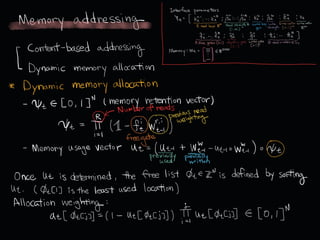 Memory addressing
Interface parameters
Content-based addressing
Dynamic memory allocation
* Dynamic memory allocation
- ψt ∈ [0, 1]^N (memory retention vector)
Number of reads
previous read weighting
ψt = ∏_{i=1}^{R} (1 - f_t^i w_{t-1}^{r,i})
free gate
- Memory usage vector ut = (ut-1 + w^w_{t-1} - ut-1 ∘ w^w_{t-1}) ∘ ψt
previously used previously written
Once ut is determined, the free list φt ∈ Z^N is defined by sorting
ut. (φt[1] is the least used location)
Allocation weighting:
at[φt[j]] = (1 - ut[φt[j]]) ∏_{i=1}^{j-1} ut[φt[i]] ∈ [0,1]^N